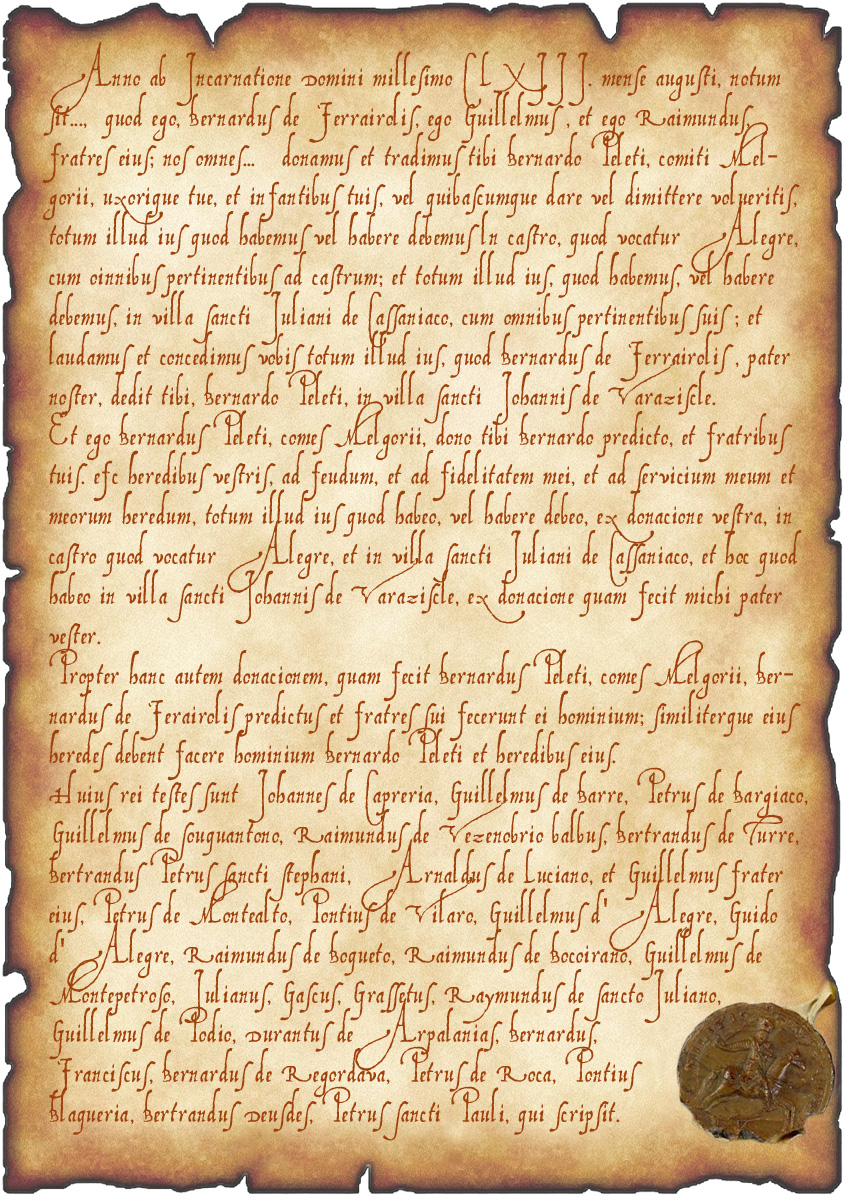 Anno ab Incarnatione Domini millesimo CLXIII. mense augusti, notum
sit..., quod ego, Bernardus de Ferrairolis, ego Guillelmus, et ego Raimundus,
fratres eius; nos omnes... donamus et tradimus tibi Bernardo Peleti, comiti Mel-
gorii, uxorique tue, et infantibus tuis, vel quibascumque dare vel dimittere volueritis,
totum illud ius quod habemus vel habere debemus ln castro, quod vocatur Alegre,
cum oinnibus pertinentibus ad castrum; et totum illud ius, quod habemus, vel habere
debemus, in villa sancti Juliani de Cassaniaco, cum omnibus pertinentibus suis; et
laudamus et concedimus vobis totum illud ius, quod Bernardus de Ferrairolis, pater
noster, dedit tibi, Bernardo Peleti, in villa sancti Johannis de Varaziscle.
Et ego Bernardus Peleti, comes Melgorii, dono tibi Bernardo predicto, et fratribus
tuis. efc heredibus vestris, ad feudum, et ad fidelitatem mei, et ad servicium meum et
meorum heredum, totum illud ius quod habeo, vel habere debeo, ex donacione vestra, in
castro quod vocatur Alegre, et in villa sancti Juliani de Cassaniaco, et hoc quod
habeo in villa sancti Johannis de Varaziscle, ex donacione quam fecit michi pater
vester.
Propter hanc autem donacionem, quam fecit Bernardus Peleti, comes Melgorii, Ber-
nardus de Ferairolis predictus et fratres sui fecerunt ei hominium; similiterque eius
heredes debent facere hominium Bernardo Peleti et heredibus eius.
Huius rei testes sunt Johannes de Capreria, Guillelmus de Barre, Petrus de Bargiaco,
Guillelmus de Souquantono, Raimundus de Vezenobrio balbus, Bertrandus de Turre,
Bertrandus Petrus sancti Stephani, Arnaldus de Luciano, et Guillelmus frater
eius, Petrus de Montealto, Pontius de Vilaro, Guillelmus d' Alegre, Guido
d' Alegre, Raimundus de Boqueto, Raimundus de Bocoirano, Guillelmus de
Montepetroso, Julianus, Gascus, Grassetus, Raymundus de sancto Juliano,
Guillelmus de Podio, Durantus de Arpalanias, Bernardus,
Franciscus, Bernardus de Regordava, Petrus de Roca, Pontius
Blaqueria, Bertrandus Deusdes, Petrus sancti Pauli, qui scripsit.